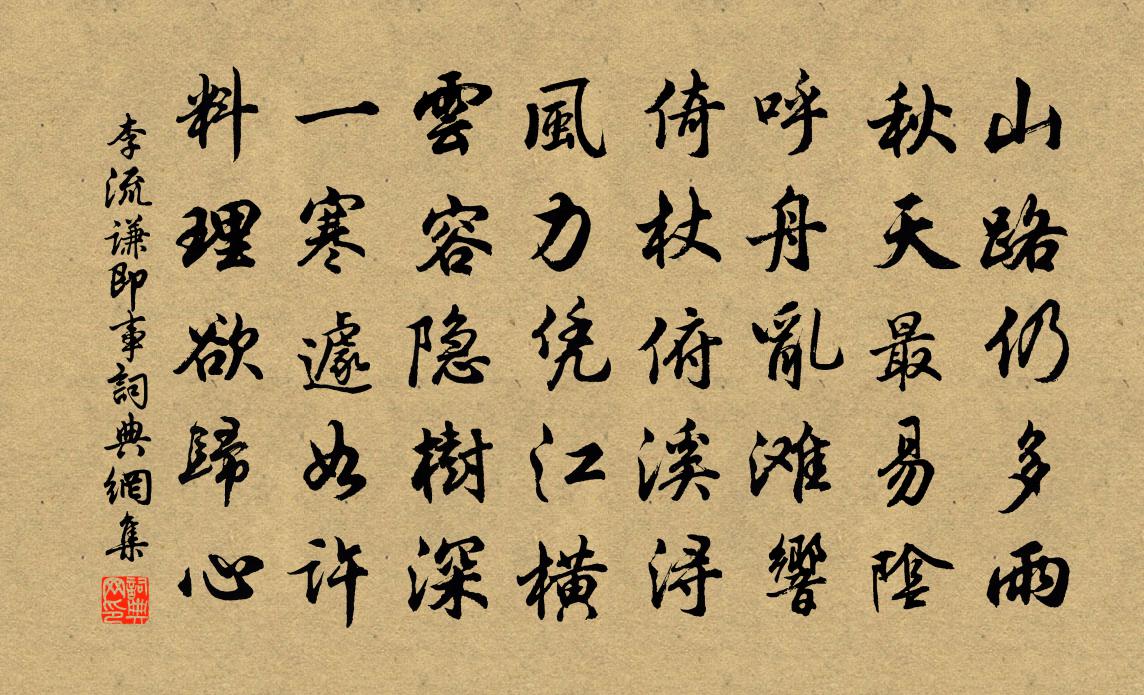 山路仍多雨
秋天最易陰
呼舟亂滩響
倚杖俯溪浔
風力凭江橫
雲容隐樹深
一寒遽如許
料理欲歸心
李流谦即事詞典網集
詞典网印